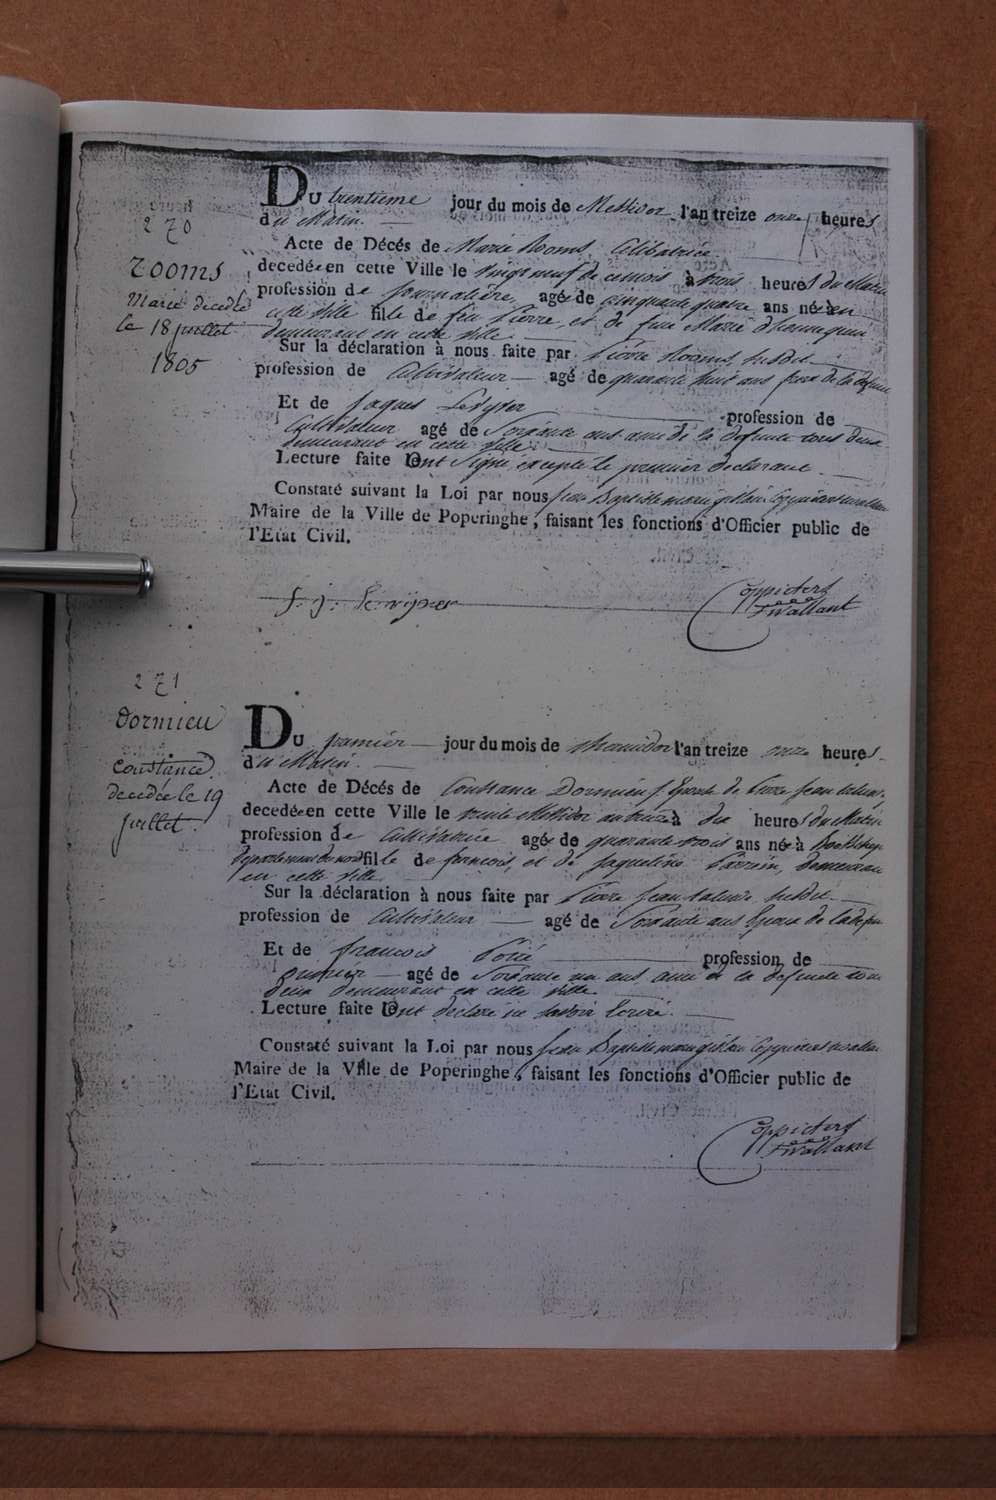 270
Rooms
Marie decedée
le 18 juillet
1805
Du trentieme jour du mois de Messidor l'an treize onze heures
du Matin.
Acte de Décés de Marie Rooms, Célibatrice
decedée en cette Ville le vingt neuf de ce mois à trois heures du Matin
profession de journaliére, agée de cinquante quatre ans née en
cette ville fille de feu Pierre, et de feue Marie
demeurant en cette ville.
Sur la déclaration à nous faite par Pierre Rooms susdit
profession de Cultivateur agé de quarante huit ans frere de la defunte
Et de Jaques Levyser profession de
Cultivateur agé de Soixante ans ami de la defunte tous deux
demeurant en cette ville.
Lecture faite ont signé, excepté le premier declarant
Constaté suivant la Loi par nous Jean Baptiste
Maire de la Ville de Poperinghe, faisant les fonctions d'Officier public de
l'Etat Civil.
Coppieters
t'Wallant
271
Dormieu
Constance
decedée le 19
juillet.
Du premier jour du mois de thermidor l'an treize onze heures
du Matin.
Acte de Décés de Constance Dormieu, Epouse de Pierre Jean
decedée en cette Ville le trente Messidor an treize à dix heures du Matin
profession de Cultivatrice agée de quarante trois ans née à
departement du nord fille de francois, et de Jaqueline demeurant
en cette ville
Sur la déclaration à nous faite par Pierre Jean susdit
profession de Cultivateur agé de Soixante ans Epoux de la defunte
Et de francois profession de
agé de Soixante un ans ami de la defunte tous
deux demeurant en cette ville.
Lecture faite ont declaré ne savoir Ecrire.
Constaté suivant la Loi par nous Jean Baptiste
Maire de la Ville de Poperinghe, faisant les fonctions d'Officier public de
l'Etat Civil.
Coppieters
t'Wallant